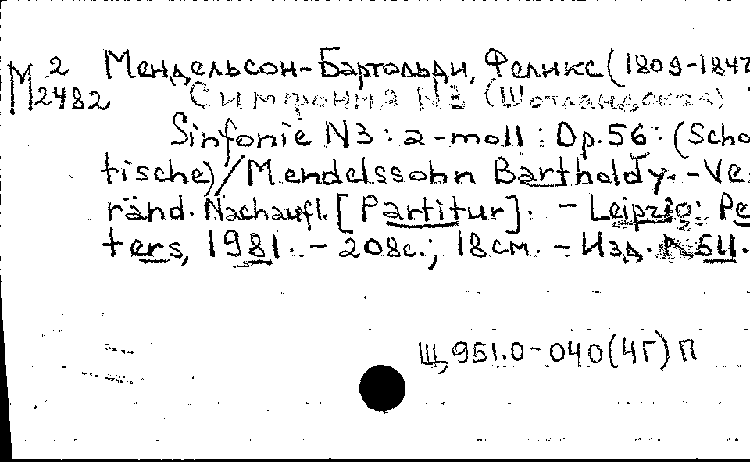 2 Мендельсон-Бартольди, Феликс (1809-1847
М2482 Симфония N3 (Шотландская)
Sinfonie N3: a-moll: Op.56: (Scho
tische)/Mendelssohn Bartholdy.-Ve
ränd. Nachaufl. [Partitur]. - Leipzig: Pe
ters, 1981. - 208с.; 18см. - Изд. N511.
Щ951.0-040(4Г)П